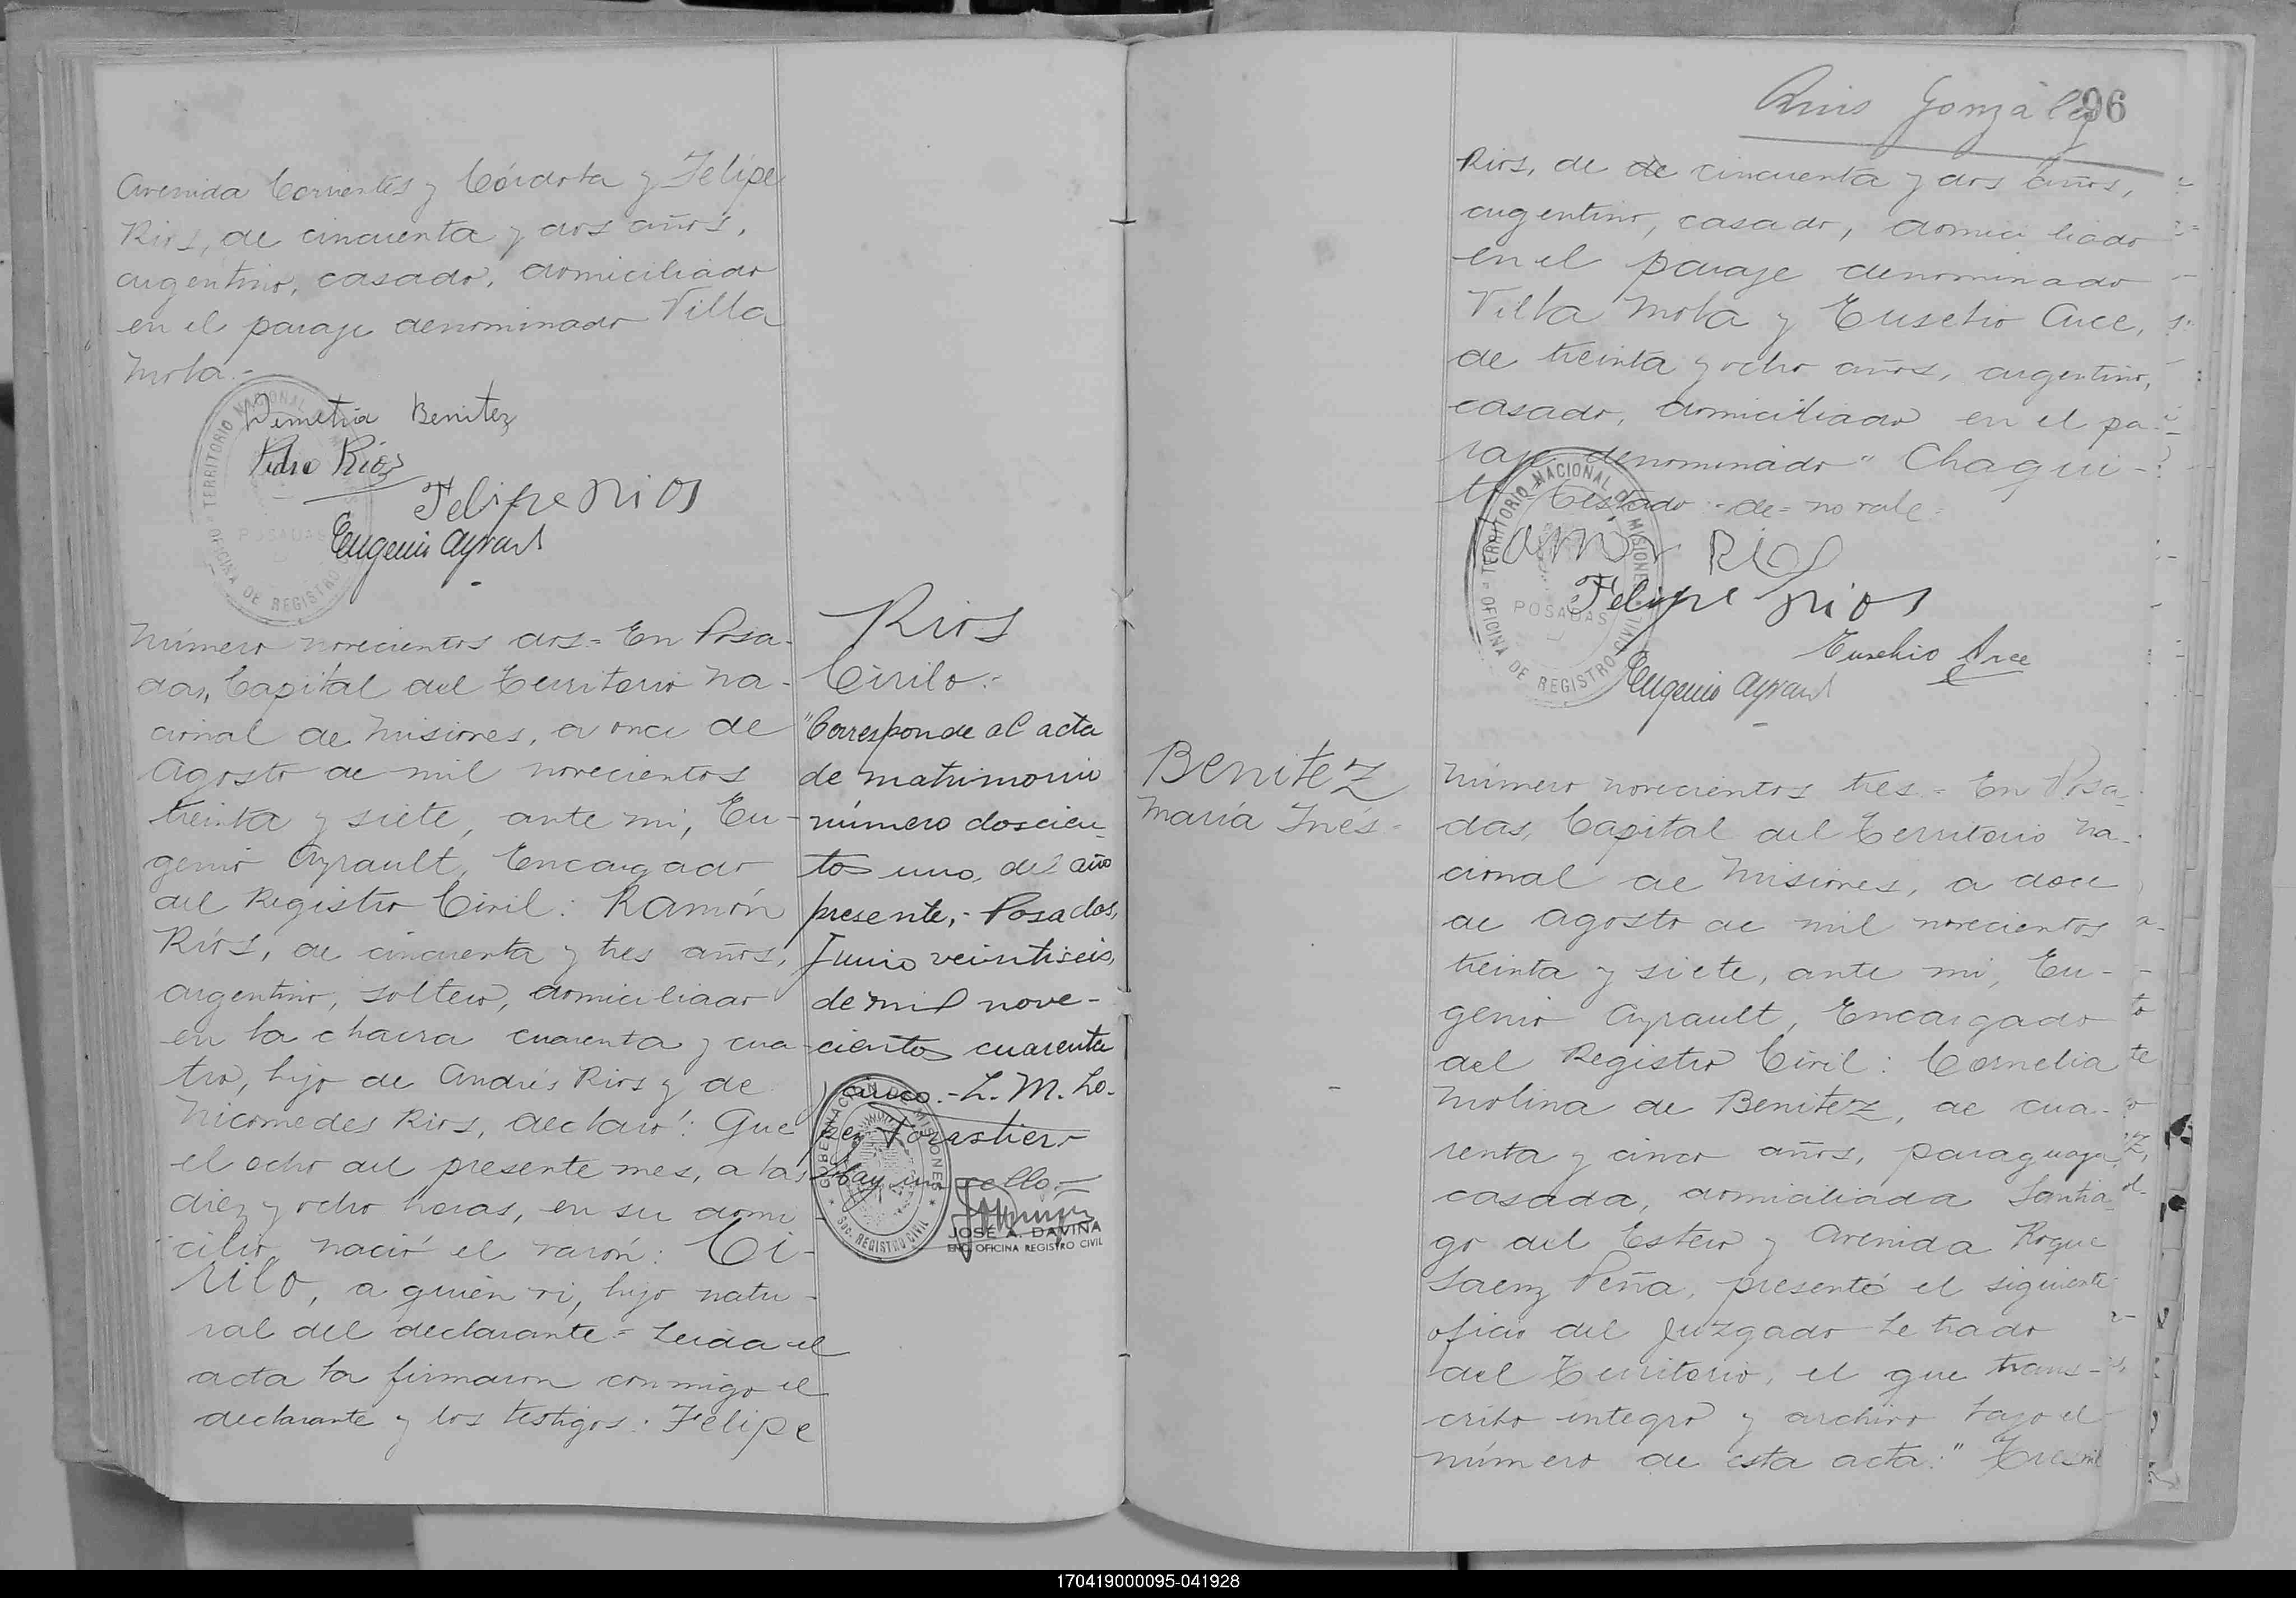 Avenida Corrientes y Córdoba y Felipe
Rios, de cincuenta y dos años,
argentino, casado, domiciliado
en el paraje denominado Villa
Mola.-
Demetria Benitez
Pedro Rios
Felipe Rios
Eugenio Ayrault
TERRITORIO NACIONAL
POSADAS
OFICINA DE REGISTRO
Número novecientos dos = En Posa-
das, Capital del Territorio Na-
cional de Misiones, a once de
Agosto de mil novecientos
treinta y siete, ante mi, Eu-
genio Ayrault, Encargado
del Registro Civil: Ramón
Ríos, de cincuenta y tres años,
argentino, soltero, domiciliado
en la chacra cuarenta y cua-
tro, hijo de Andrés Rios y de
Nicomedes Rios, declaró: Que
el ocho del presente mes, a las
diez y ocho horas, en su domi-
cilio, nació el varón: Ci-
rilo, a quien vi, hijo natu-
ral del declarante = Leida el
acta la firmaron conmigo el
declarante y los testigos: Felipe
Rios
Cirilo.-
"Corresponde al acta
de matrimonio
número doscien-
tos uno, del año
presente,- Posadas,
Junio veintiseis,
de mil nove-
cientos cuarenta
y cinco.- L. M. Lo-
pez Forastier.-
Hay un sello.-
GOBERNACION DE MISIONES
SEC. REGISTRO CIVIL
JOSÉ A. DAVIÑA
ENC. OFICINA REGISTRO CIVIL
Ruis González
96
Rios, de de cincuenta y dos años,
argentino, casado, domiciliado
en el paraje denominado
Villa Mola y Eusebio Arce,
de treinta y ocho años, argentino,
casado, domiciliado en el pa-
raje denominado "Chaqui-
to" Testado :-de= no vale=
Ramón Rios
Felipe Rios
Eusebio Arce
Eugenio Ayrault
TERRITORIO NACIONAL DE MISIONES
POSADAS
OFICINA DE REGISTRO CIVIL
Benitez
María Inés-
Número novecientos tres = En Posa-
das, Capital del Territorio Na-
cional de Misiones, a doce
de Agosto de mil novecientos
treinta y siete, ante mi, Eu-
genio Ayrault, Encargado
del Registro Civil: Cornelia
Molina de Benitez, de cua-
renta y cinco años, paraguaya,
casada, domiciliada Santia-
go del Estero y Avenida Roque
Saenz Peña, presentó el siguiente
oficio del Juzgado Letrado
del Territorio, el que trans-
cribo integro y archivo bajo el
número de esta acta: "Tres mil
170419000095-041928